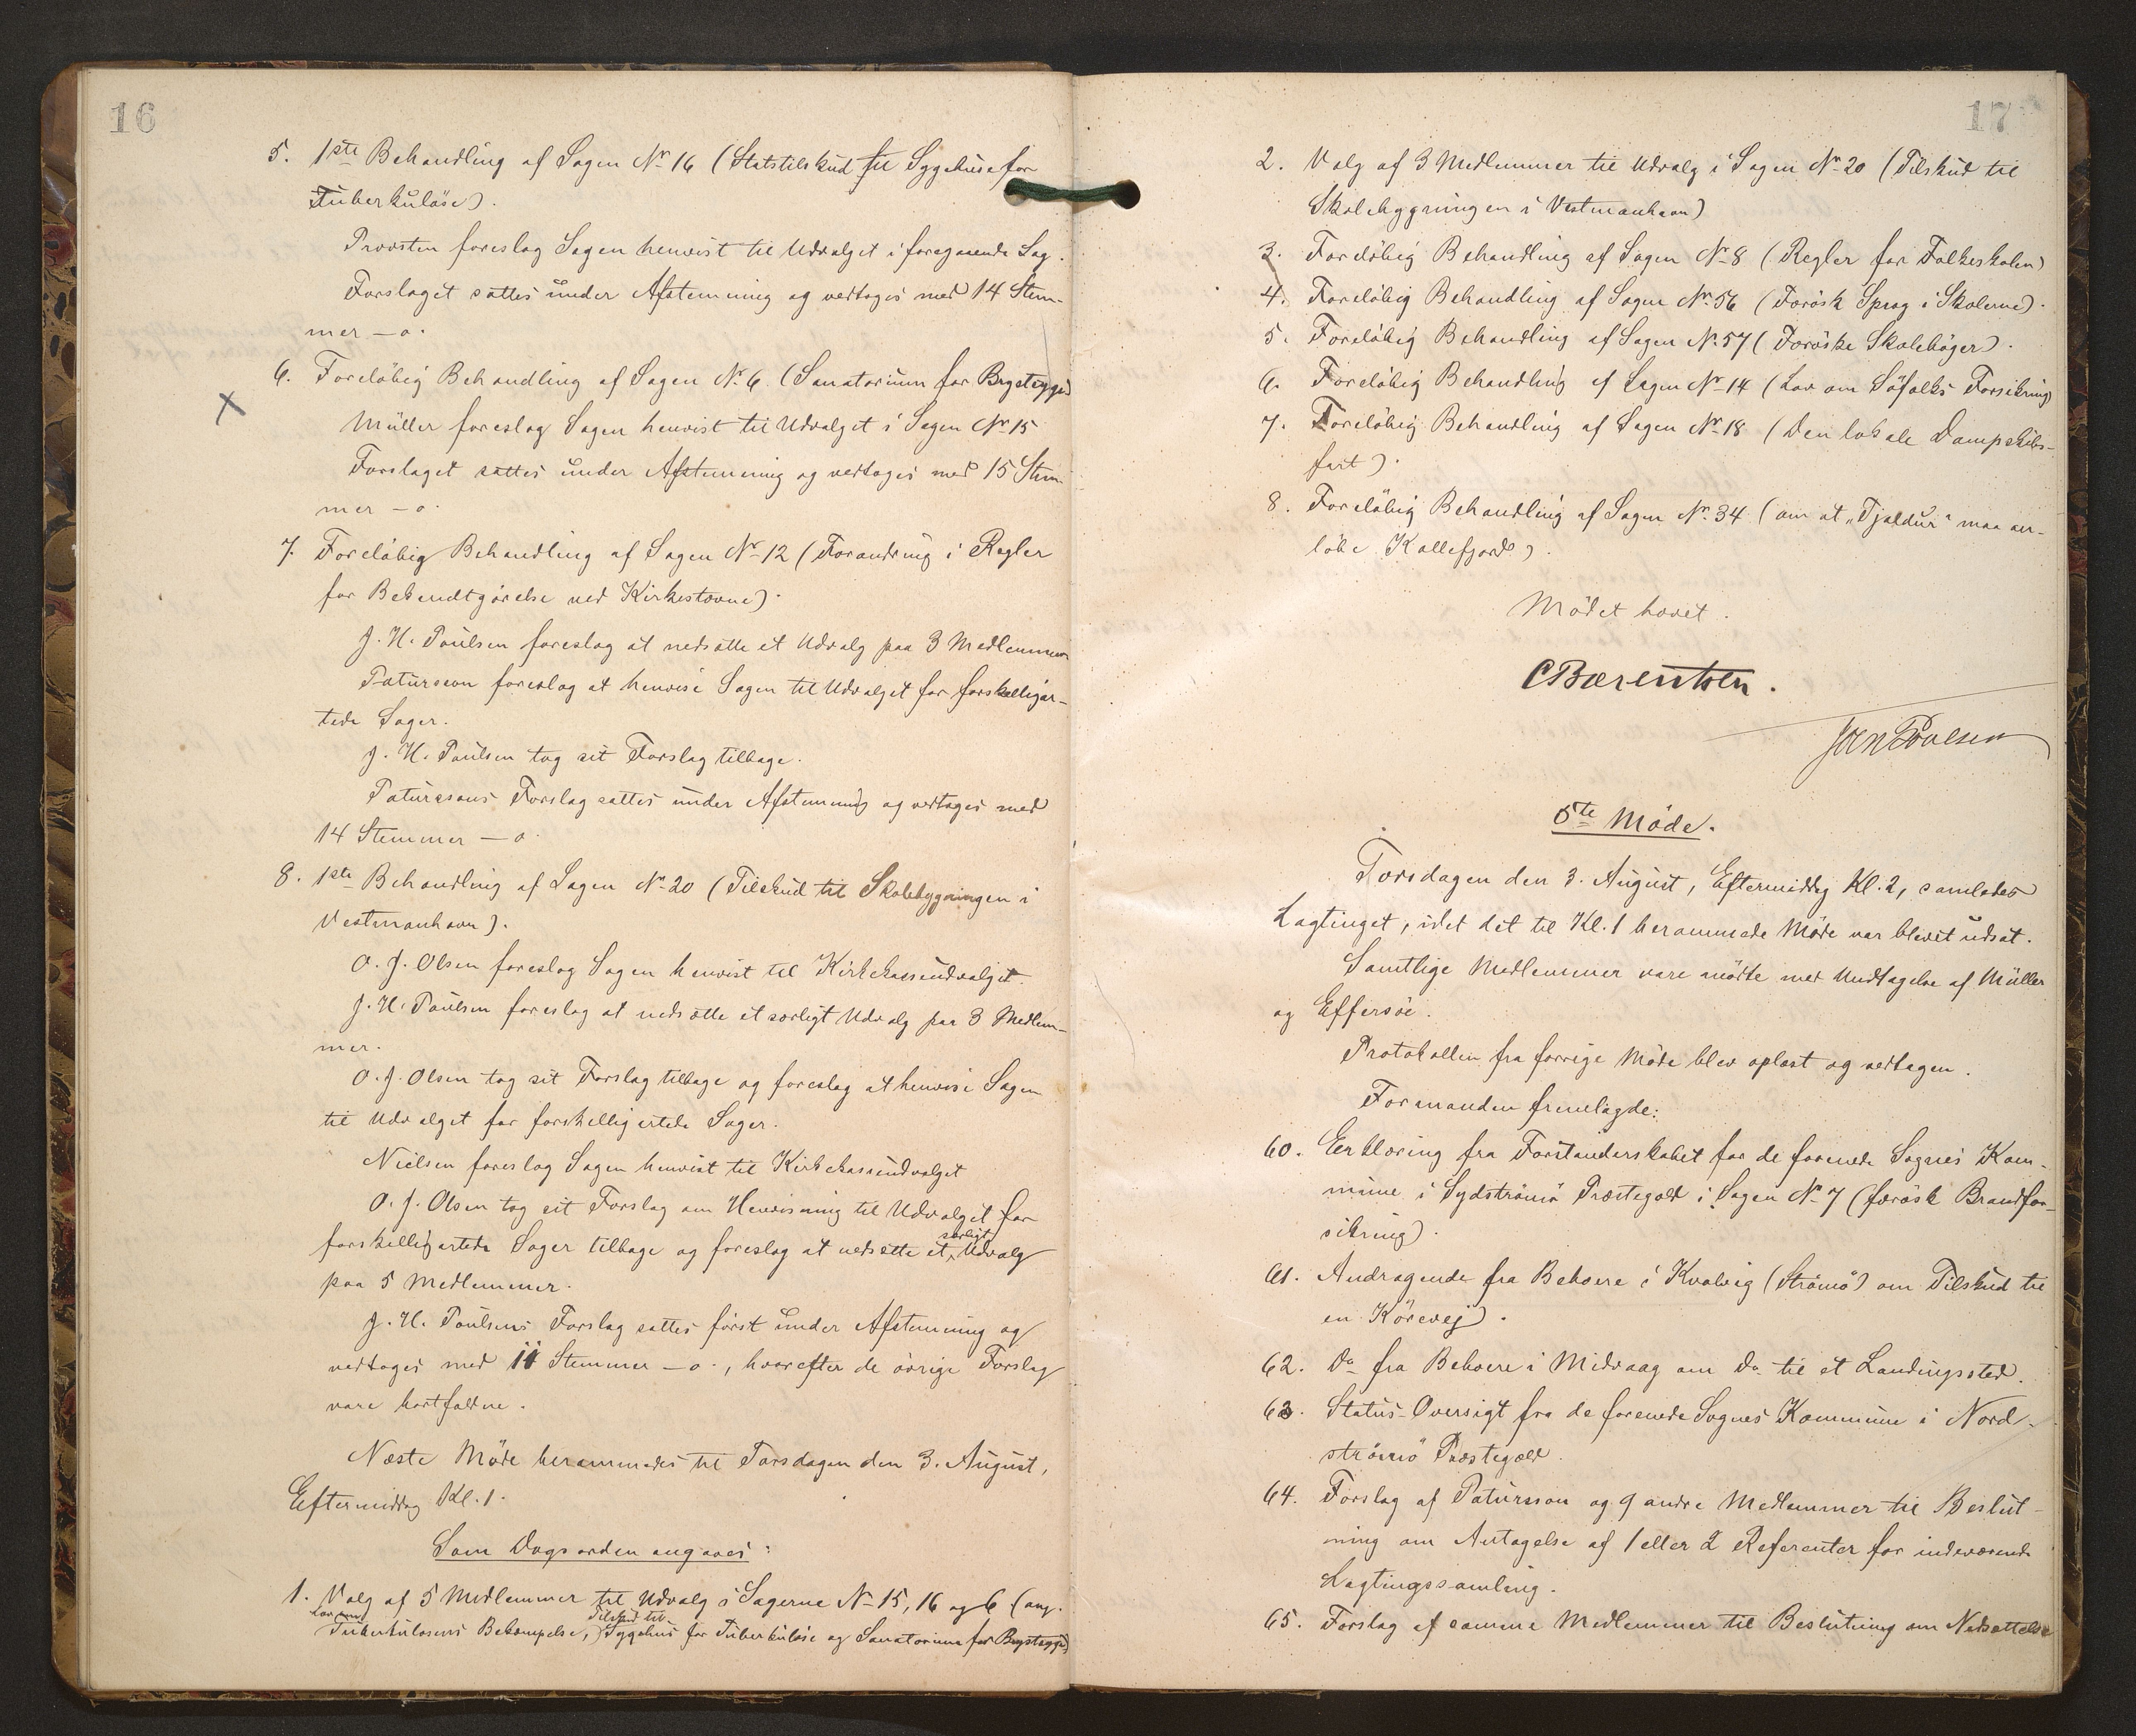 16
5. 1ste Behandling af Sagen Nr 16 (Statstilskud til Sygehuse for
Tuberkuløse).
Provsten foreslog Sagen henvist til Udvalget i foregaaende Sag.
Forslaget sattes under Afstemning og vedtoges med 14 Stem-
mer – o.
6. Foreløbig Behandling af Sagen Nr. 6. (Sanatorium for Brystsyge)
Müller foreslog Sagen henvist til Udvalget i Sagen Nr 15
Forslaget sattes under Afstemning og vedtoges med 15 Stem-
mer – o.
7. Foreløbig Behandling af Sagen Nr 12 (Forandring i Regler
for Bekendtgørelse ved Kirkestævne).
J. H. Poulsen foreslog at nedsætte et Udvalg paa 3 Medlemmer
Patursson foreslog at henvise Sagen til Udvalget for forskelligar-
tede Sager.
J. H. Poulsen tog sit Forslag tilbage.
Paturssons Forslag sattes under Afstemning og vedtoges med
14 Stemmer – o.
8. 1ste Behandling af Sagen Nr 20 (Tilskud til Skolebygningen i
Vestmanhavn).
O. J. Olsen foreslog Sagen henvist til Kirkekasseudvalget.
J. H. Poulsen foreslog at nedsætte et særligt Udvalg paa 3 Medlem-
mer.
O. J. Olsen tog sit Forslag tilbage og foreslog at henvise Sagen
til Udvalget for forskelligartede Sager.
Nielsen foreslog Sagen henvist til Kirkekasseudvalget
O. J. Olsen tog sit Forslag om Henvisning til Udvalget for
forskelligartede Sager tilbage og foreslog at nedsætte et særligt Udvalg
paa 5 Medlemmer.
J. H. Poulsens Forslag sattes først under Afstemning og
vedtoges med 11 Stemmer – o., hvorefter de øvrige Forslag
vare bortfaldne.
Næste Møde berammedes til Torsdagen den 3. August,
Eftermiddag Kl. 1.
Som Dagsorden angaves:
1. Valg af 5 Medlemmer til Udvalg i Sagerne Nr 15, 16 og 6 (ang.
Lov om Tuberkulosens Bekæmpelse, Tilskud til Sygehus for Tuberkuløse og Sanatorium for Brystsyge)
17
2. Valg af 3 Medlemmer til Udvalg i Sagen Nr 20 (Tilskud til
Skolebygningen i Vestmanhavn)
3. Foreløbig Behandling af Sagen Nr 8 (Regler for Folkeskolen)
4. Foreløbig Behandling af Sagen Nr. 56 (Færøsk Sprog i Skolerne).
5. Foreløbig Behandling af Sagen Nr. 57 (Færøske Skolebøger).
6. Foreløbig Behandling af Sagen Nr 14 (Lov om Søfolks Forsikring)
7. Foreløbig Behandling af Sagen Nr 18 (Den lokale Dampskibs-
fart).
8. Foreløbig Behandling af Sagen Nr. 34 (om at "Tjaldur" maa an-
løbe Kollefjord).
Mødet hævet.
CBærentsen.
JHPoulsen
5te Møde.
Torsdagen den 3. August, Eftermiddag Kl. 2, samledes
Lagtinget, idet det til Kl. 1 berammede Møde var blevet udsat.
Samtlige Medlemmer vare mødte med Undtagelse af Müller
og Effersøe.
Protokollen fra forrige Møde blev oplæst og vedtagen.
Formanden fremlagde:
60. Erklæring fra Forstanderskabet for de forenede Sognes Kom-
mune i Sydstrømø Præstegæld i Sagen Nr 7 (færøsk Brandfor-
sikring).
61. Andragende fra Beboere i Kvalvig (Strømø) om Tilskud til
en Kørevej).
62. Do fra Beboere i Midvaag om Do til et Landingssted.
63. Status-Oversigt fra de forenede Sognes Kommune i Nord-
strømø Præstegæld.
64. Forslag af Patursson og 9 andre Medlemmer til Beslut-
ning om Antagelse af 1 eller 2 Referenter for indeværende
Lagtingssamling.
65. Forslag af samme Medlemmer til Beslutning om Nedsættelse